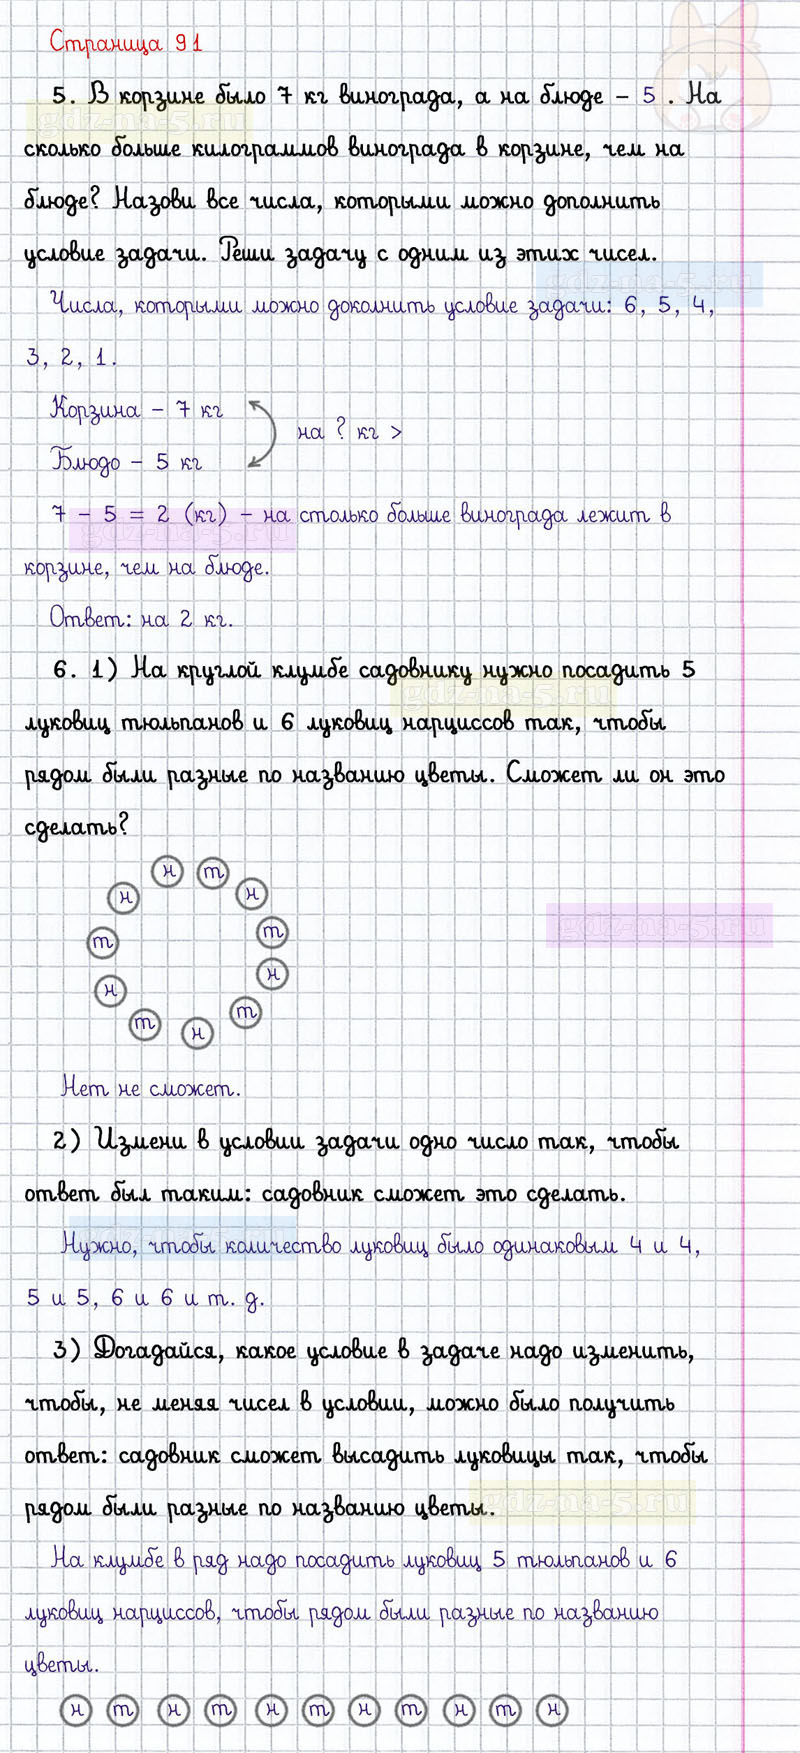 Страница 91
5. В корзине было 7 кг винограда, а на блюде – 5 . На
gdz-na-5.ru
сколько больше килограммов винограда в корзине, чем на
блюде? Назови все числа, которыми можно дополнить
условие задачи. Реши задачу с одним из этих чисел.
gdz-na-5.ru
Числа, которыми можно доколнить условие задачи: 6, 5, 4,
3, 2, 1.
Корзина – 7 кг
на ? кг >
Блюдо – 5 кг
7 – 5 = 2 (кг) – на столько больше винограда лежит в
gdz-na-5.ru
корзине, чем на блюде.
Ответ: на 2 кг.
6. 1) На круглой клумбе садовнику нужно посадить 5
gdz-na-5.ru
луковиц тюльпанов и 6 луковиц нарциссов так, чтобы
рядом были разные по названию цветы. Сможет ли он это
сделать?
н т
н н
т т
gdz-na-5.ru
н н
т т
н
Нет не сможет.
2) Измени в условии задачи одно число так, чтобы
ответ был таким: садовник сможет это сделать.
gdz-na-5.ru
Нужно, чтобы количество луковиц было одинаковым 4 и 4,
5 и 5, 6 и 6 и т. д.
3) Догадайся, какое условие в задаче надо изменить,
чтобы, не меняя чисел в условии, можно было получить
ответ: садовник сможет высадить луковицы так, чтобы
рядом были разные по названию цветы.
gdz-na-5.ru
На клумбе в ряд надо посадить луковиц 5 тюльпанов и 6
луковиц нарциссов, чтобы рядом были разные по названию
цветы.
н т н т н т н т н т н